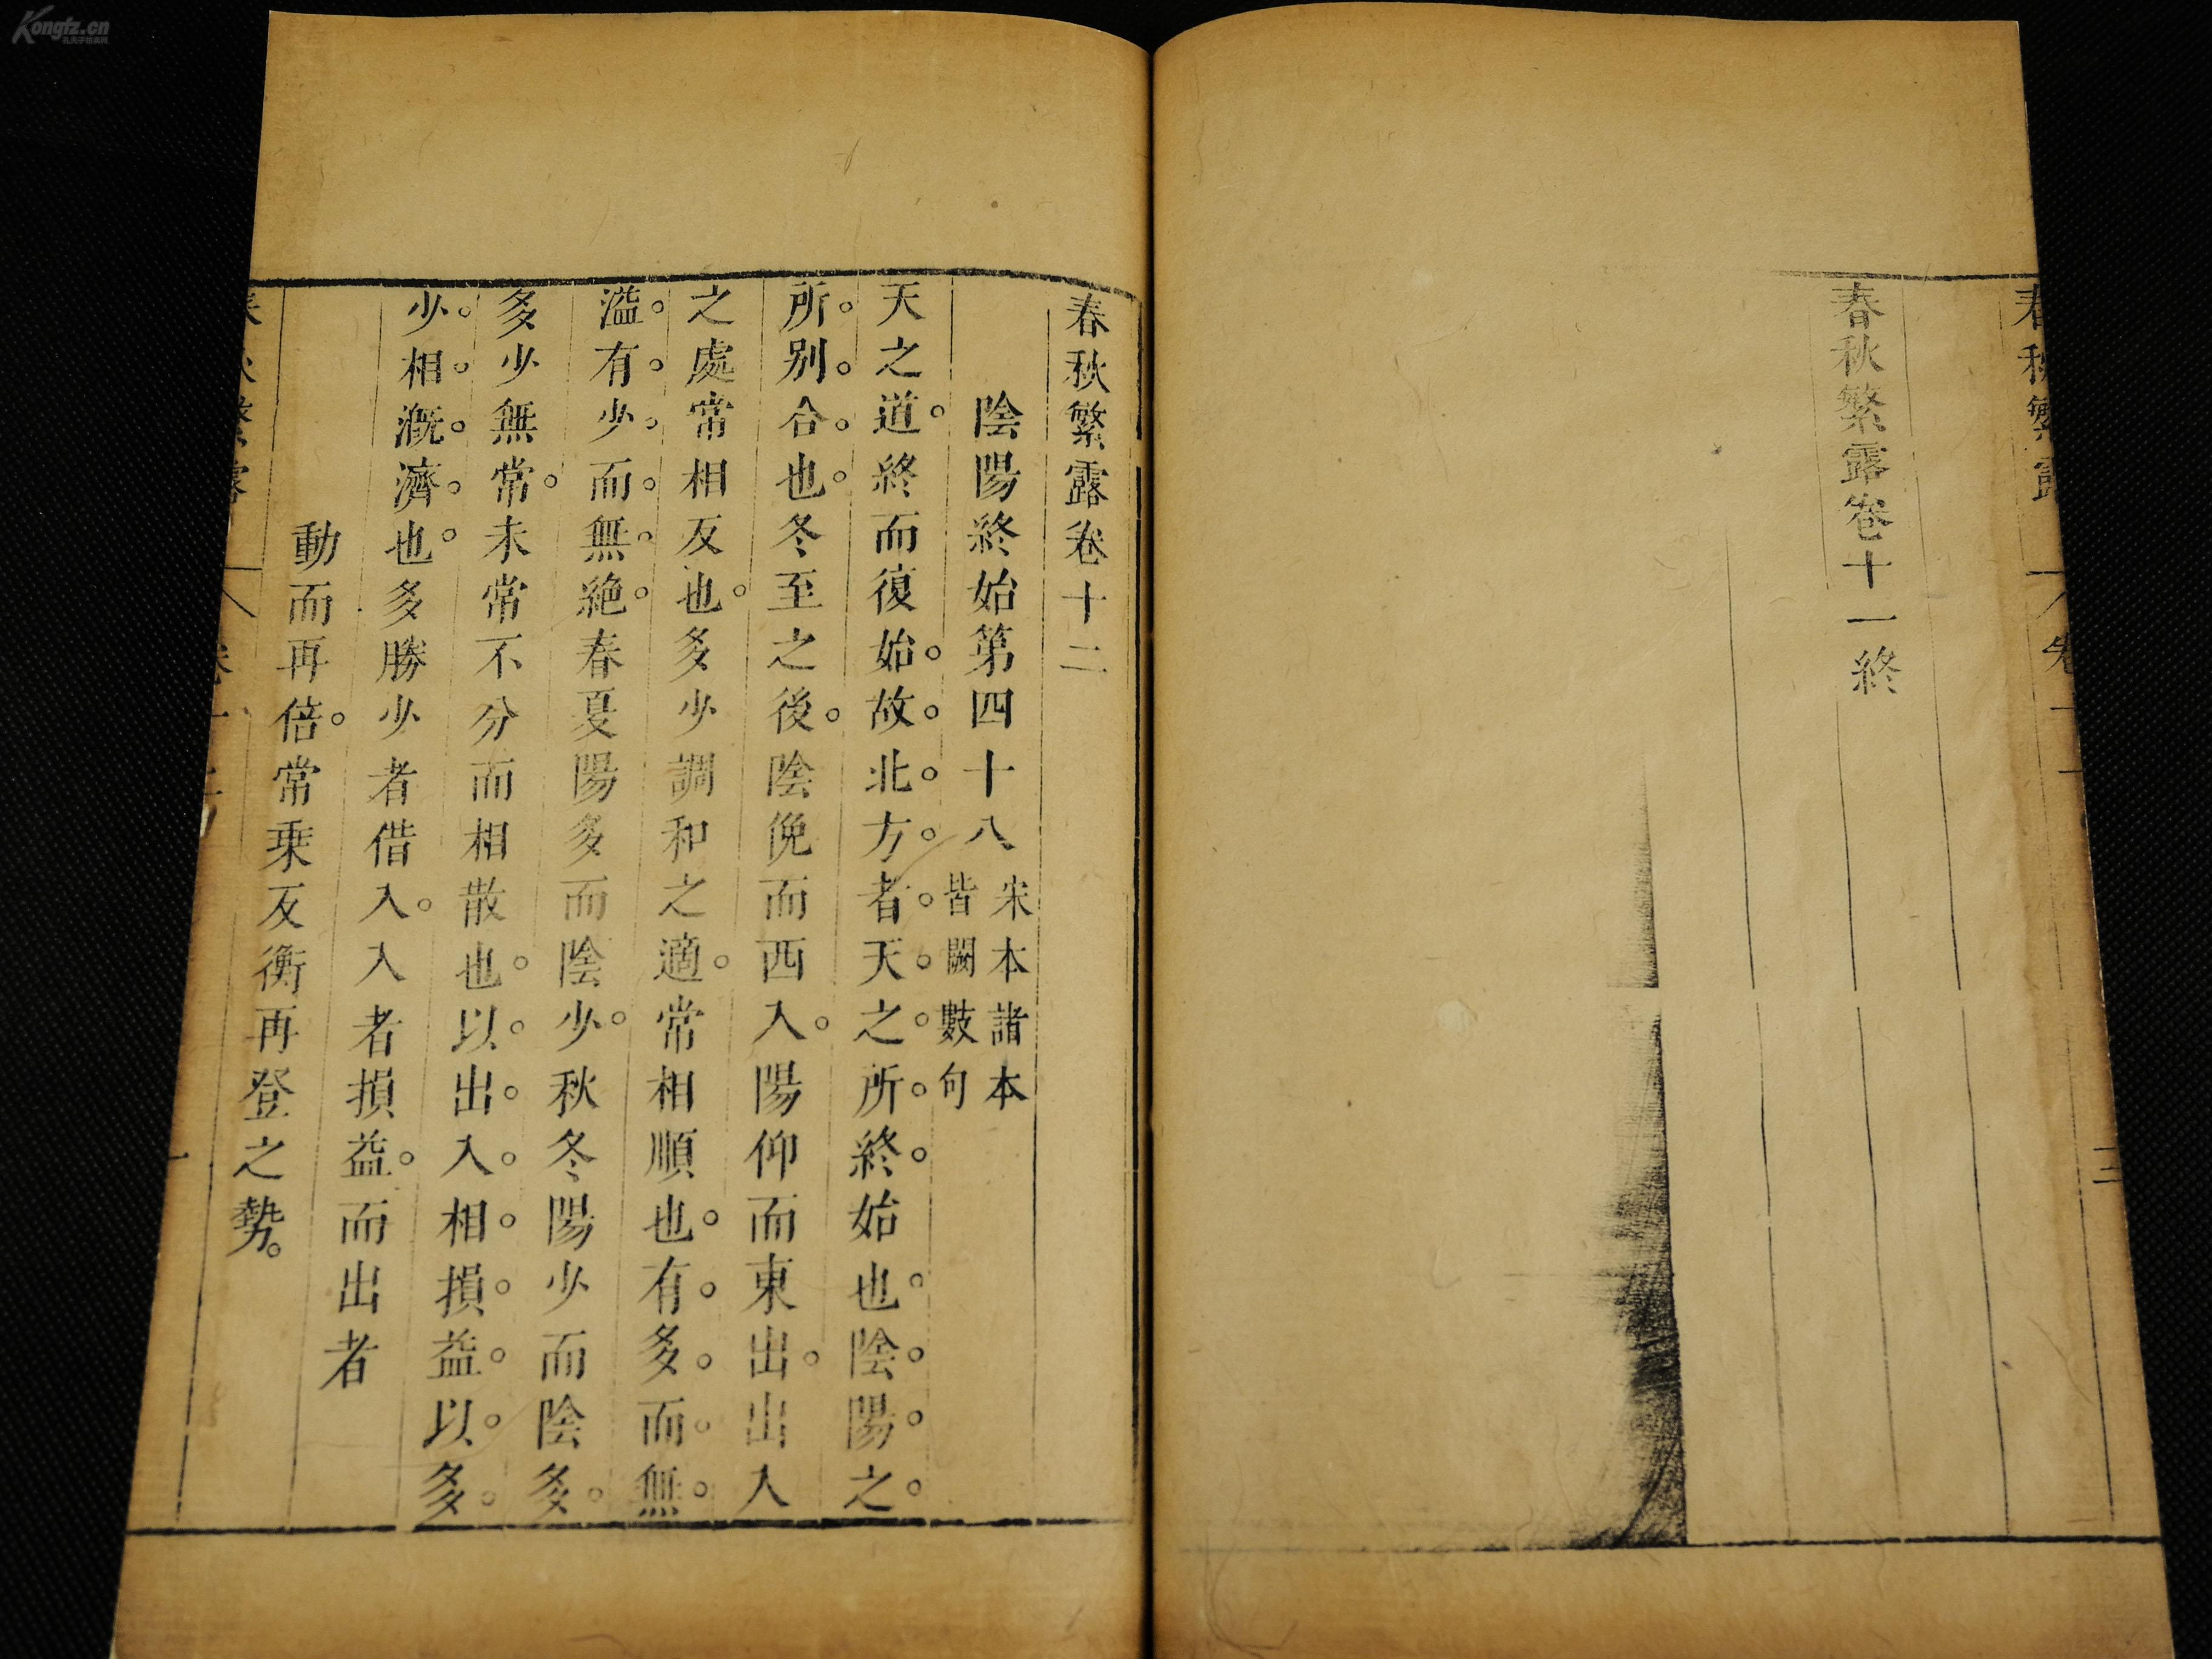 Kongfz.cn
春秋繁露卷十一終
春秋繁露卷十二
陰陽終始第四十八
宋本諸本
皆闕數句
天之道。終而復始。故。北。方。者。天。之。所。終。始也。陰。陽。之。
所。別。合。也。冬至之後。陰俛而西入。陽仰而東出。出入
之處常相反也。多少調和之適。常相順也。有。多。而。無。
溢。有。少。而。無。絶。春夏陽多而陰少。秋冬陽少而陰多。
多少無常。未常不分而相散也。以。出。入。相。損。益。以。多。
少。相。溉。濟。也。多勝少者借入。入者損益。而出者
動而再倍。常乗反衡再登之勢。